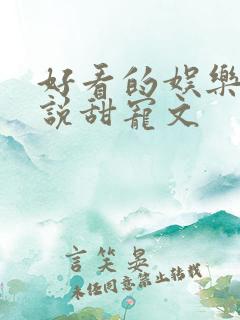 好看的娱樂
説甜寵文
言笑晏
未经同意禁止转载